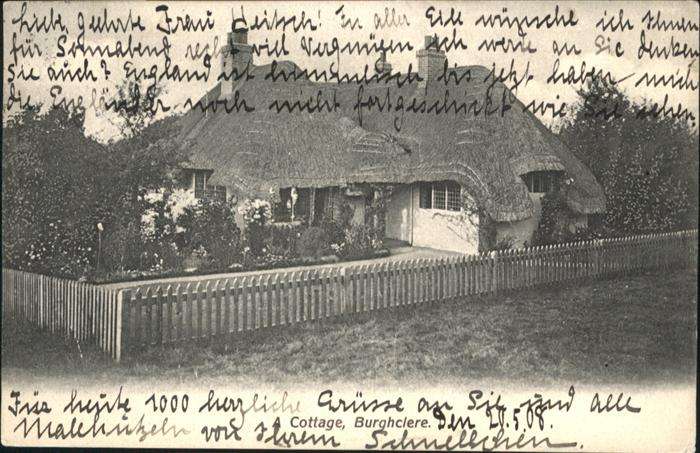 Sehr geehrte Frau Heitsch! In aller Eile wünsche ich Ihnen
für Sonnabend recht viel Vergnügen, ich werde an Sie denken
Sie auch? England ist himmlisch bis jetzt haben mich
die Engländer noch nicht fortgeschickt wie Sie sehen.
Für heute 1000 herzliche Grüsse an Sie und alle
Cottage, Burghclere. Den 27.5.08.
von Ihrem Schnellchen.